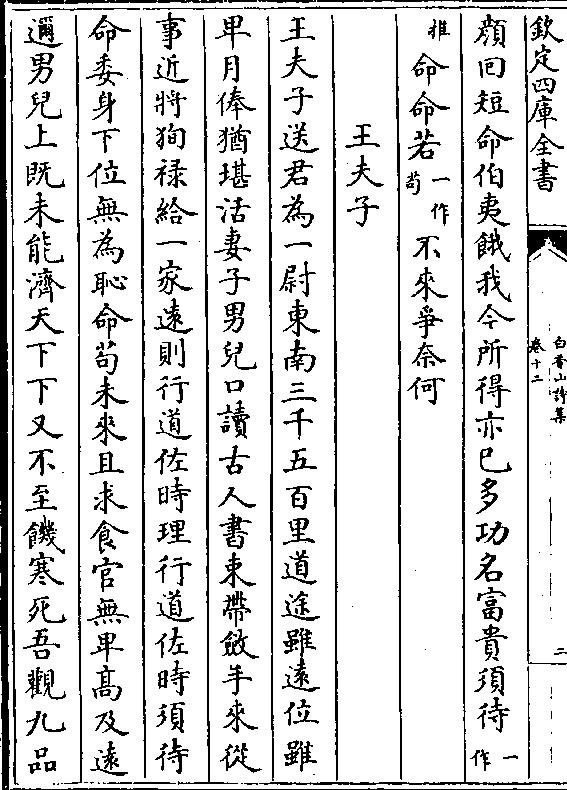 欽定四庫全書
白香山詩集
卷十二
二
顔回短命伯夷餓我今所得亦已多功名富貴須待一作
推命命若一作苟不來爭奈何
王夫子
王夫子送君為一尉東南三千五百里道途雖遠位雖
卑月俸猶堪活妻子男兒口讀古人書束帶斂手來從
事近將徇禄給一家遠則行道佐時理行道佐時須待
命委身下位無為恥命苟未來且求食官無卑髙及逺
邇男兒上既未能濟天下下又不至饑寒死吾觀九品